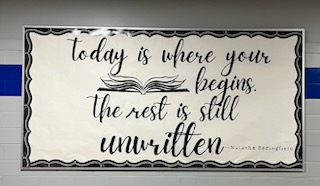 today is where your
begins.
the rest is still
unwritten
-Natasha Bedingfield